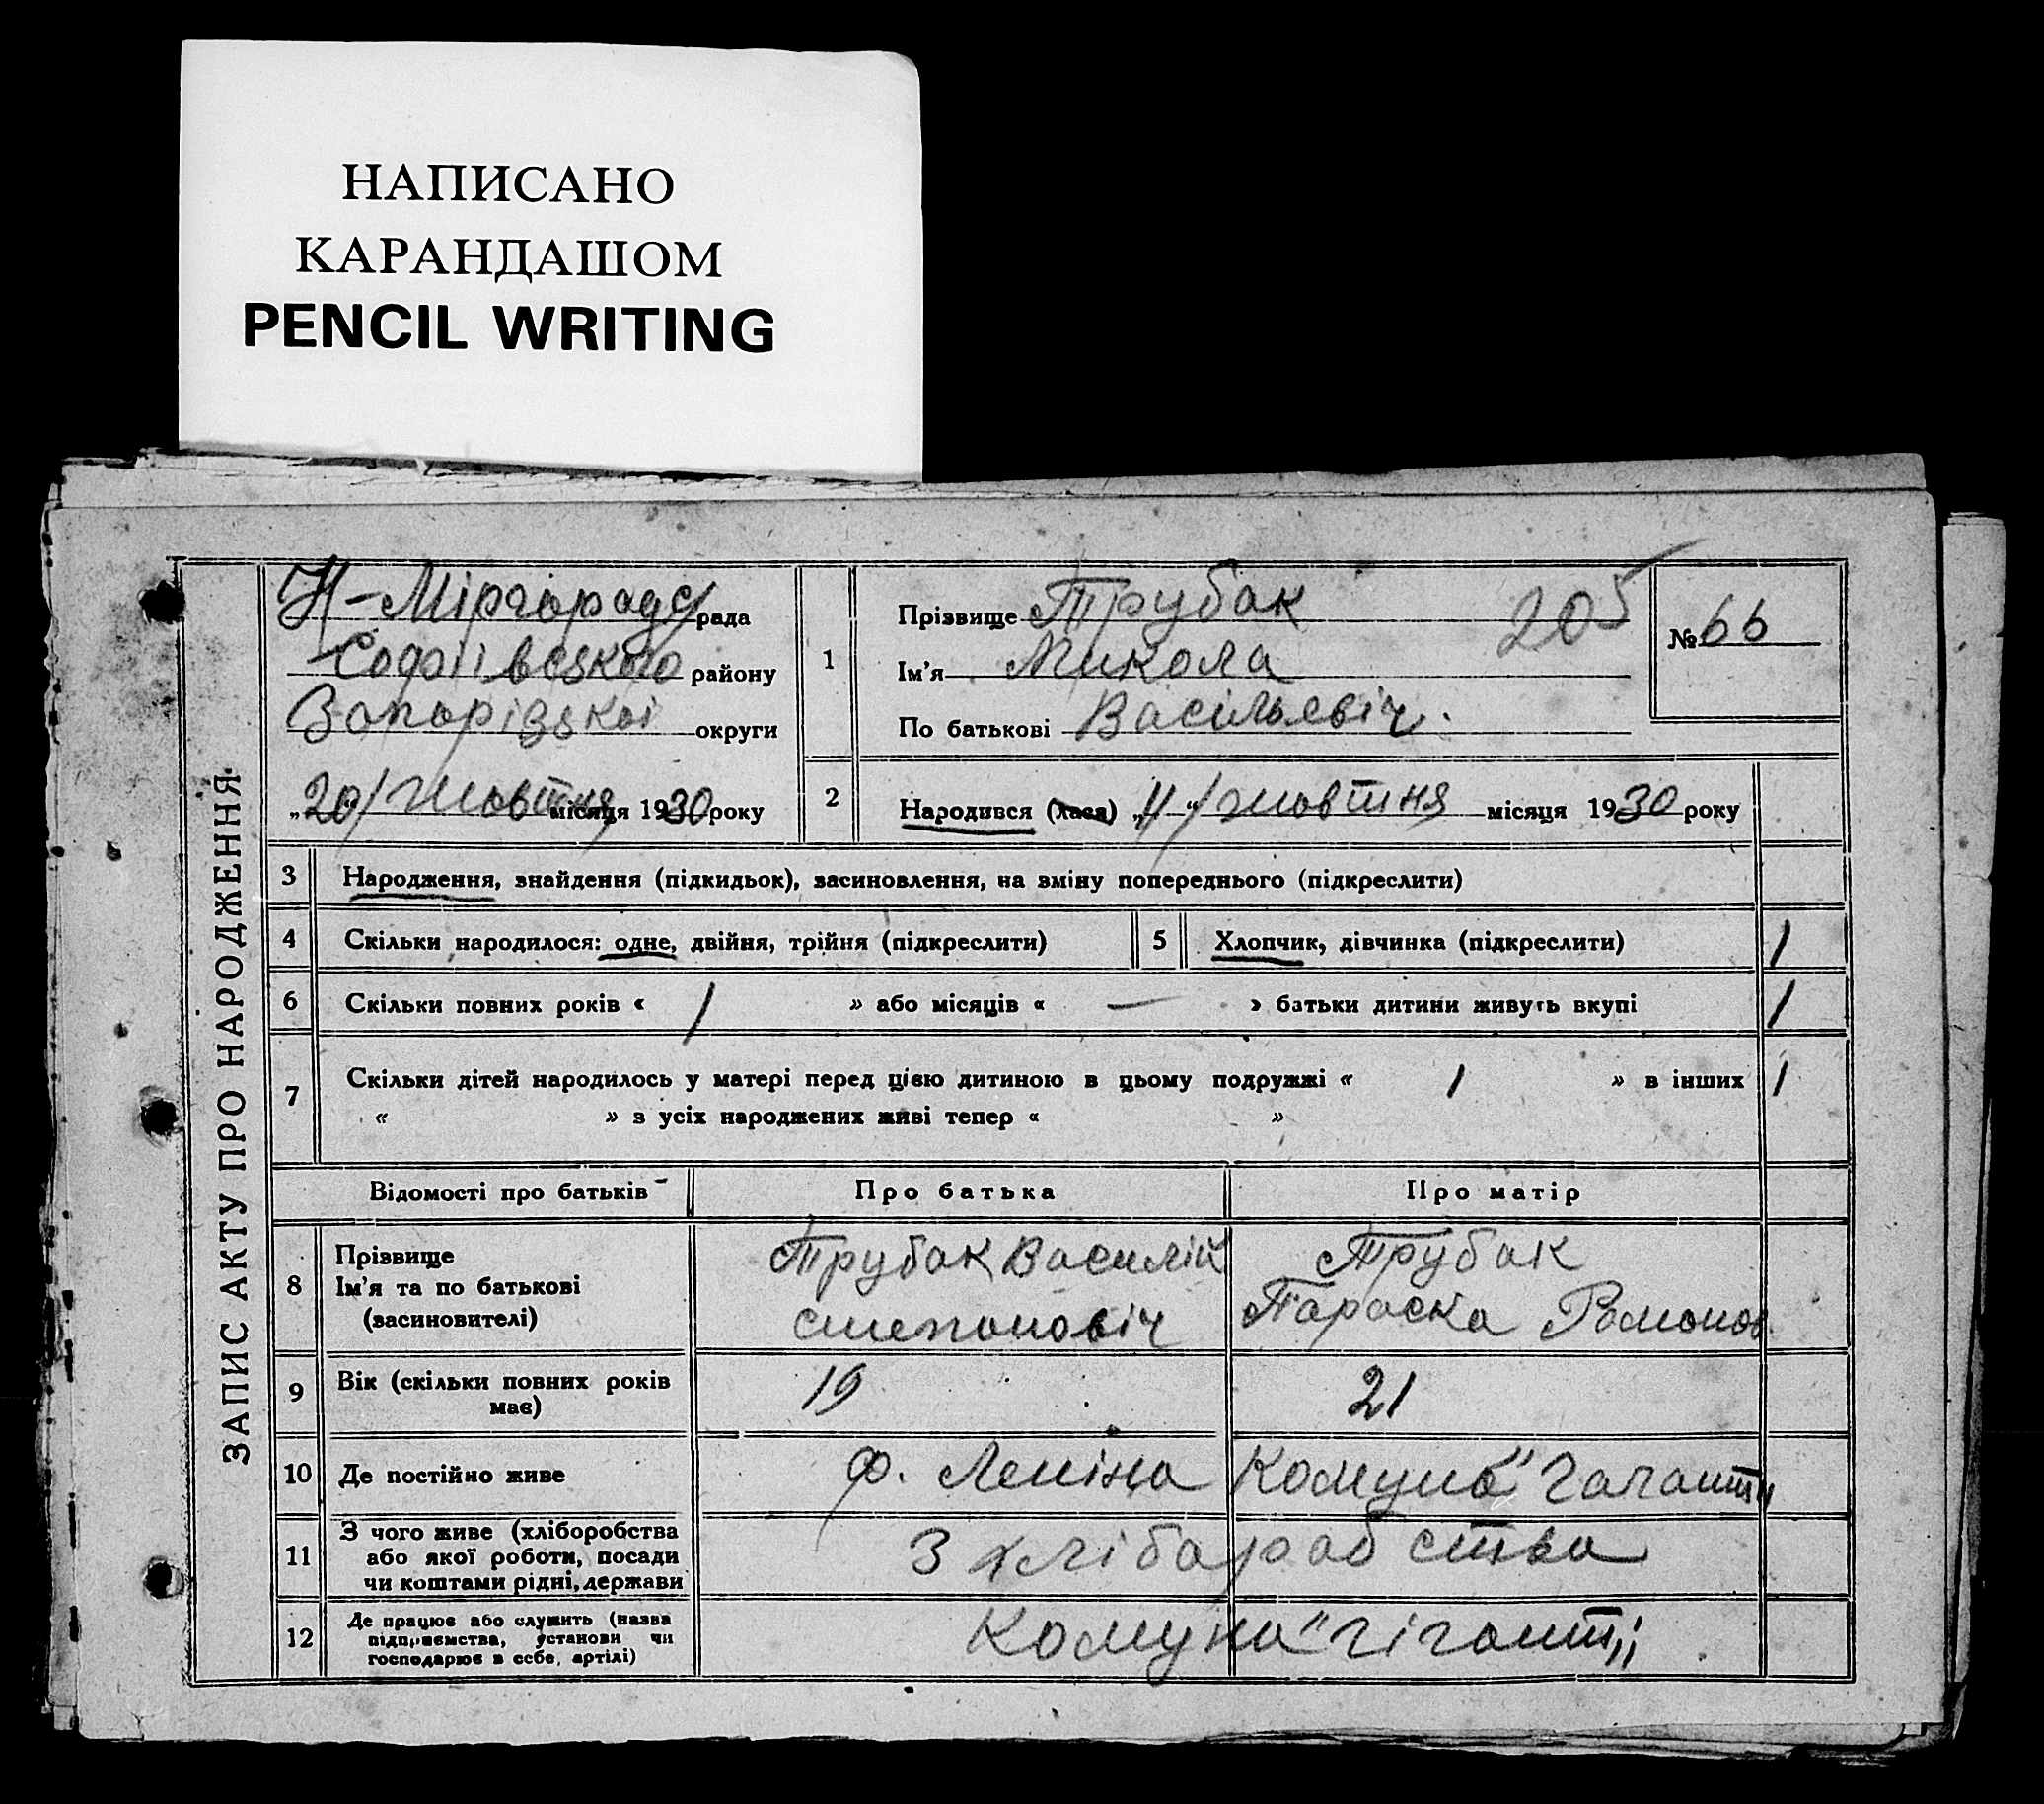 НАПИСАНО
КАРАНДАШОМ
PENCIL WRITING
ЗАПИС АКТУ ПРО НАРОДЖЕННЯ
Н-Міргородс рада
Софіївського району
Запорізької округи
„20/ Жовтня місяця 1930 року
1
Прізвище Трубак
205
№ 66
Ім'я Микола
По батькові Васільевіч.
2 Народився (лася) „11"/ Жовтня місяця 1930 року
3 Народження, знайдення (підкидьок), засиновлення, на зміну попереднього (підкреслити)
4 Скільки народилося: одне, двійня, трійня (підкреслити) 5 Хлопчик, дівчинка (підкреслити) 1
6 Скільки повних років « 1 » або місяців « — » батьки дитини живуть вкупі 1
7 Скільки дітей народилось у матері перед цією дитиною в цьому подружжі « 1 » в інших 1
« » з усіх народжених живі тепер « »
Відомості про батьків Про батька Про матір
8 Прізвище
Ім'я та по батькові
(засиновителі)
Трубак Василій
степановіч
Трубак
Параска Романов
9 Вік (скільки повних років
має)
19 21
10 Де постійно живе Ф. Леніна Комуна "Гагант„
11 З чого живе (хліборобства
або якої роботи, посади
чи коштами рідні, держави
З хлібаробства
12 Де працює або служить (назва
підприємства, установи чи
господарює в себе, артілі)
Комуна "гігант„